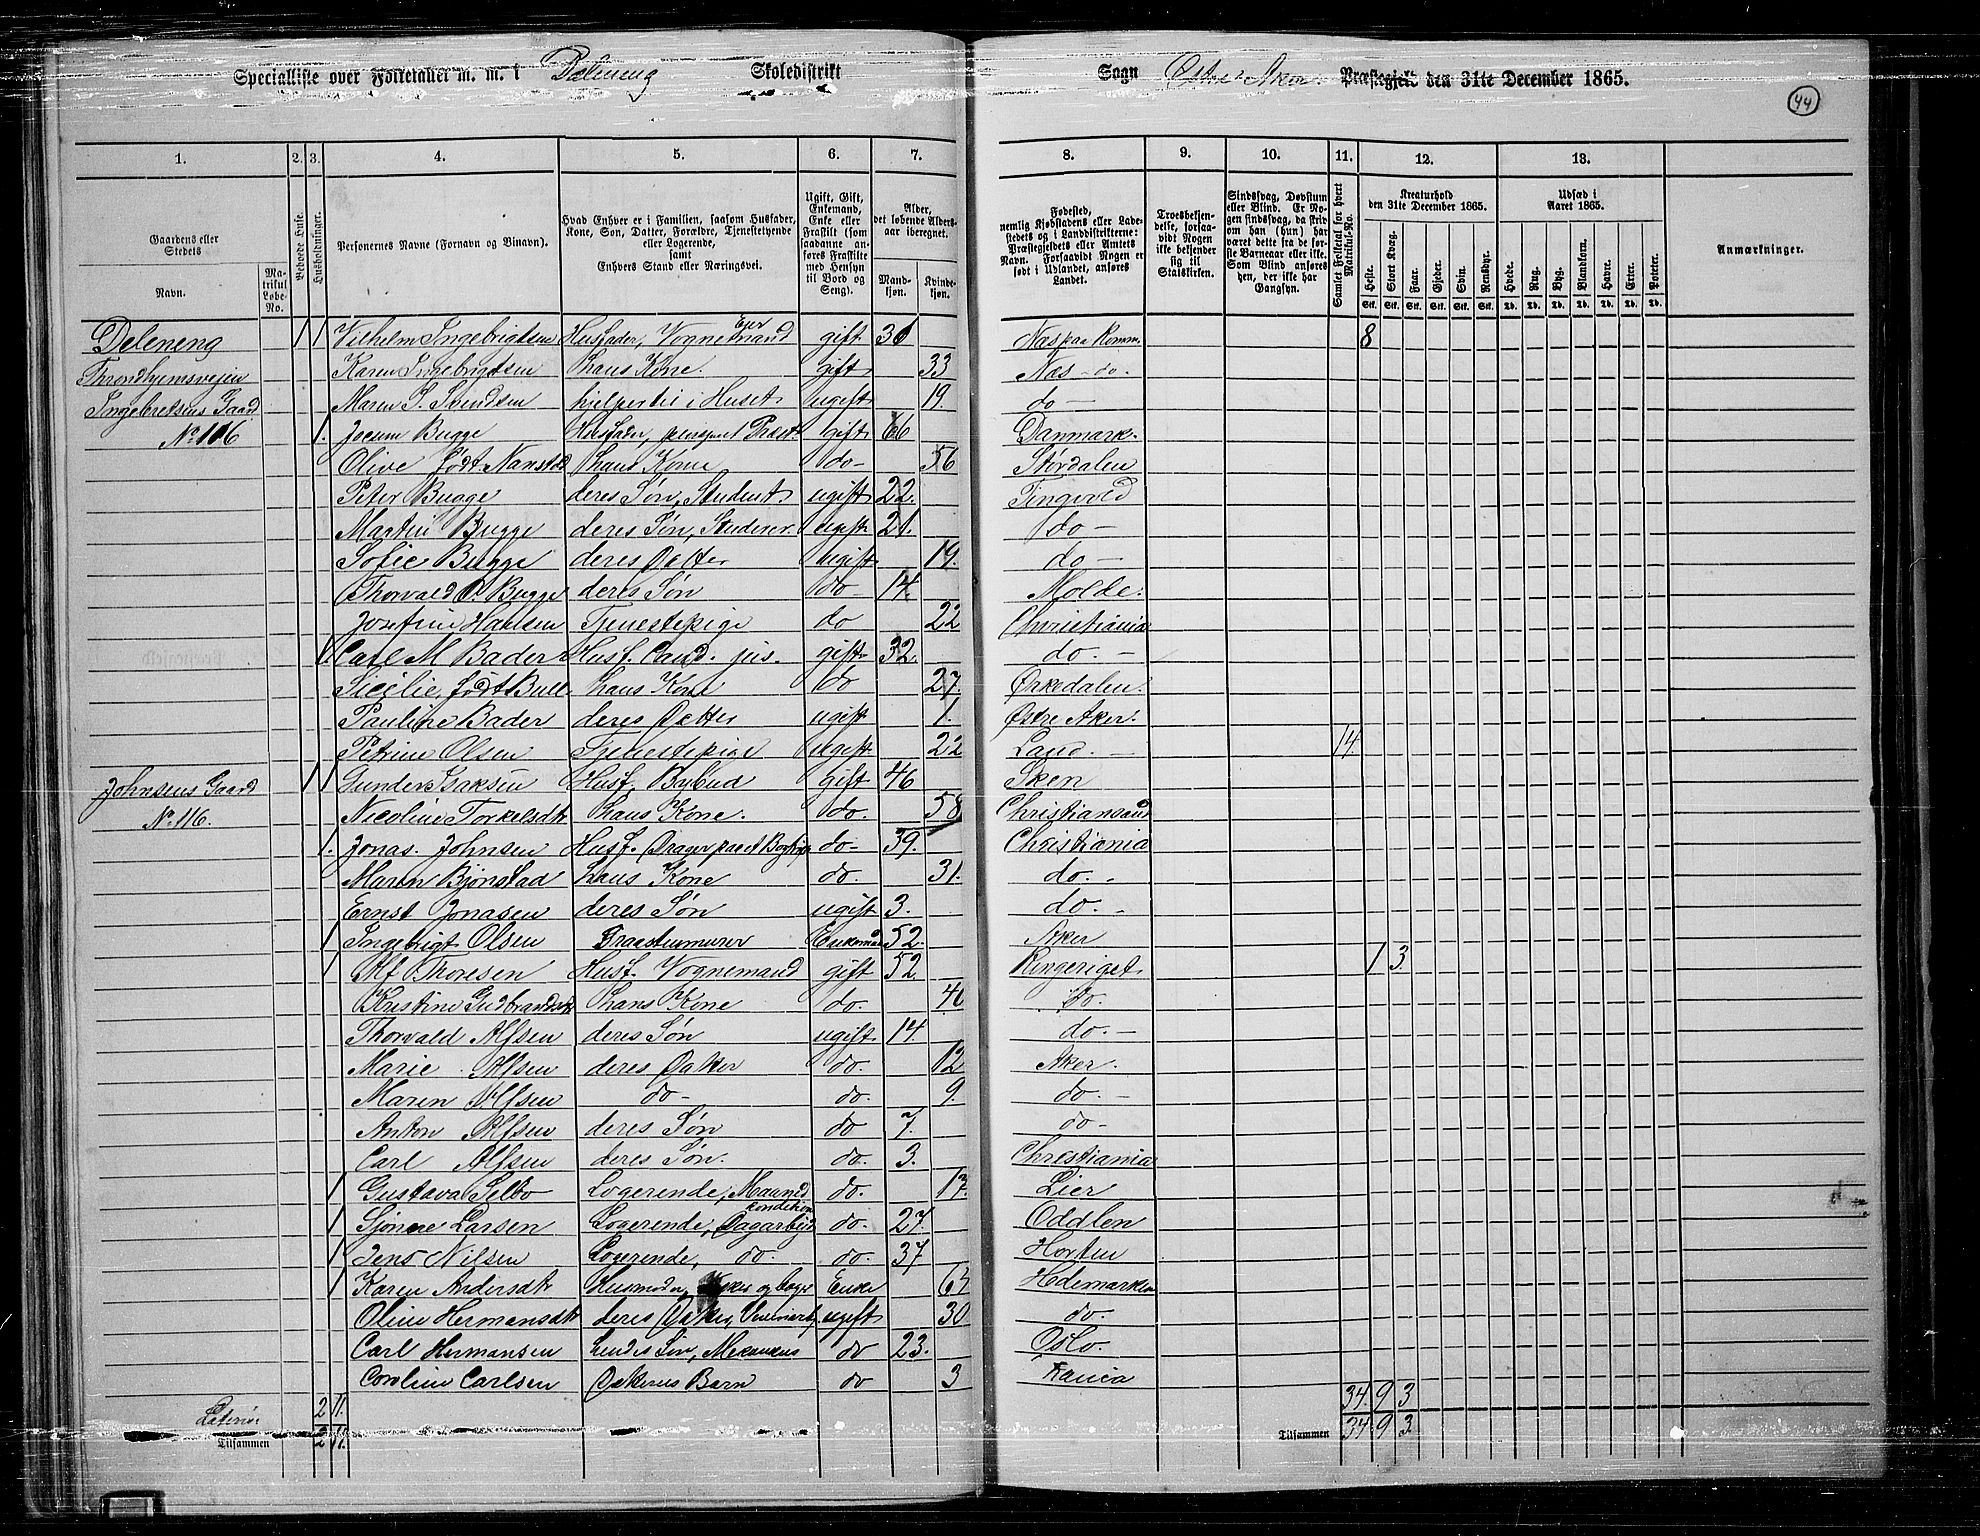 Specialliste over Folketallet m. m. i Deleneng Skoledistrikt Sogn Østre Aker Præstegjeld den 31te December 1865.
44
1. 2. 3. 4. 5. 6. 7. 8. 9. 10. 11. 12. 13.
Gaardens eller Stedets
Navn.
Matrikul Løbe-No.
Beboede Huse.
Husholdninger.
Personernes Navne (Fornavn og Binavn).
Hvad Enhver er i Familien, saasom Husfader, Kone, Søn, Datter, Forældre, Tjenestetyende eller Logerende, samt Enhvers Stand eller Næringsvei.
Ugift, Gift, Enkemand, Enke eller Fraskilt (som saadanne anføres Fraskilte med Hensyn til Bord og Seng).
Alder, det løbende Aldersaar iberegnet.
Mandkjøn. Kvindekjøn.
Fødested, nemlig Kjøbstadens eller Ladestedets og i Landdistrikterne: Præstegjeldets eller Amtets Navn. Forsaavidt Nogen er født i Udlandet, anføres Landet.
Troesbekjendelse, forsaavidt Nogen ikke bekjender sig til Statskirken.
Sindssvag, Døvstum eller Blind. Er Nogen sindssvag, da skriv om han (hun) har været dette fra de første Barneaar eller ikke. Som Blind anføres de, der ikke har Gangsyn.
Samlet Folketal for hvert Matrikul-No.
Kreaturhold den 31te December 1865.
Heste. Stort Kvæg. Faar. Gjeder. Svin. Rensdyr.
Udsæd i Aaret 1865.
Hvede. Rug. Byg. Blandkorn. Havre. Erter. Poteter.
Anmærkninger.
Deleneng 1 1 Vilhelm Ingebrigtsen Husfader, Vognemand Eier gift 36 Næs paa Romm. 8
Throndhjemsveien Karen Ingebrigtsen hans Kone. gift 33 Næs do.
Ingebretsens Gaard Maren S. Svendsen hjelper til i Huset ugift 19. do
No 116 1. Jocum Bugge Husfader, pensjonet Præst gift 66 Danmark.
Olive født Nansted hans Kone do 56 Stordalen
Peter Bugge deres Søn, Student ugift 22. Tingvold
Martin Bugge deres Søn, Studerer ugift 21. do
Sofie Bugge deres Datter ugift 19. do
Thorvald O. Bugge deres Søn do 14. Molde.
Josefine Hansen Tjenestepige do 22 Christiania
1 Carl M Bader Husf. Cand. jus. gift 32. do.
Sicilie, født Bull hans Kone do 27. Orkedalen.
Pauline Bader deres Datter ugift 1. Østre Aker.
Petrine Olsen Tjenestepige ugift 22 Land. 14
Johnsens Gaard 1 1 Gunder Isaksen Husf. Bybud gift 46 Sken
No 116. Nicoline Torkelsdtr hans Kone. do. 58 Christiansand
1. Jonas Johnsen Husf. Drager paa et Bogtryk do 39. Christiania
Maren Bjønstad hans Kone do. 31. do.
Ernst Jonasen deres Søn ugift 3. do.
1 Ingebrigt Olsen Graastensmurer Enkemand 52. Aker
1 Alf Thoresen Husf. Vognemand gift 52 Ringeriget 1 3
Kristine Gudbrandsdtr hans Kone do. 46 do.
Thorvald Alfsen deres Søn ugift 14. do.
Marie Alfsen deres Datter do. 12 Aker.
Maren Alfsen do do. 9. do.
Anton Alfsen deres Søn do 7. do
Carl Alfsen deres Søn. do. 3. Christiania
1 Gustava Selbo Logerende, Maaneds kondition do. 17. Lier
1 Sjønne Larsen Logerende, Dagarbeid do. 27. Oddlen
1 Jens Nilsen Logerende, do. do. 37 Horten
1 Karen Andersdtr Husmoder, og Enke 64 Hedemarken
Oline Hermansdtr deres Datter, ugift 30 do.
Carl Hermansen hendes Søn, Mekanikus do 23. Oslo
Caroline Carlsen Datterens Barn do 3
Lateris 2 11. 34. 9 3
Tilsammen 2 11. Tilsammen 34 9 3.